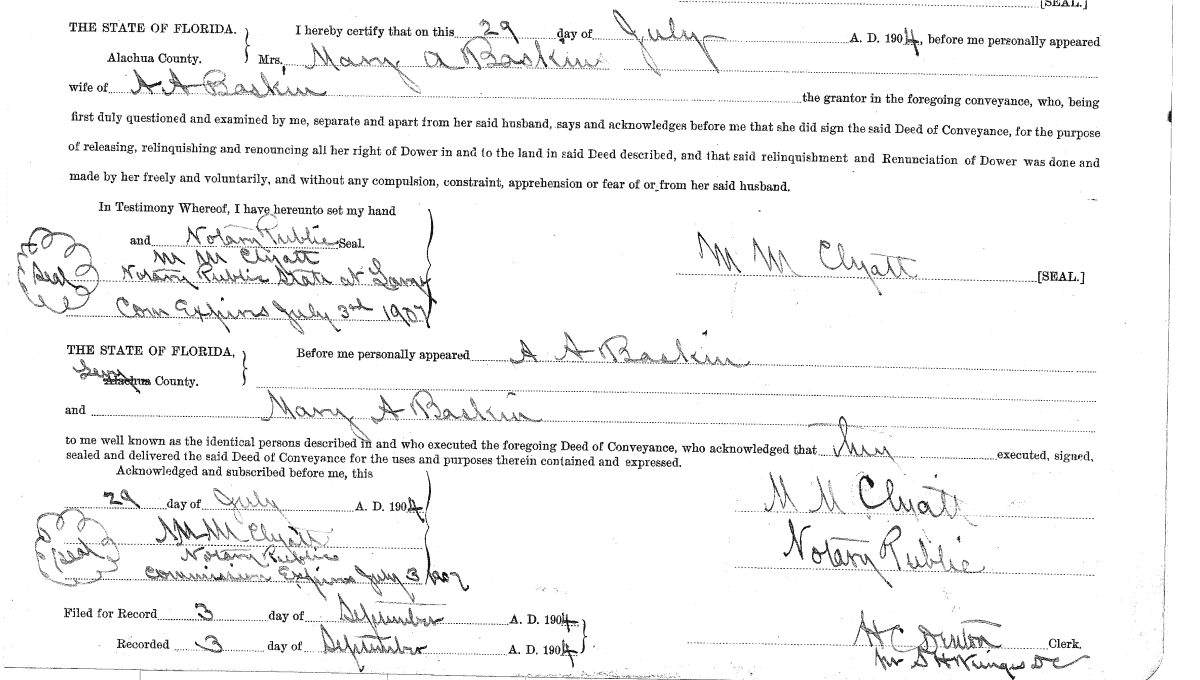 [SEAL.]
THE STATE OF FLORIDA. I hereby certify that on this 29 day of July A. D. 1904, before me personally appeared
Alachua County. Mrs. Mary A Baskin
wife of A A Baskin the grantor in the foregoing conveyance, who, being
first duly questioned and examined by me, separate and apart from her said husband, says and acknowledges before me that she did sign the said Deed of Conveyance, for the purpose
of releasing, relinquishing and renouncing all her right of Dower in and to the land in said Deed described, and that said relinquishment and Renunciation of Dower was done and
made by her freely and voluntarily, and without any compulsion, constraint, apprehension or fear of or from her said husband.
In Testimony Whereof, I have hereunto set my hand
and Notary Public Seal.
M M Clyatt
Seal Notary Public State at Large
M M Clyatt [SEAL.]
Com Expires July 3rd 1907
THE STATE OF FLORIDA, Before me personally appeared A A Baskin
Levy Alachua County.
and Mary A Baskin
to me well known as the identical persons described in and who executed the foregoing Deed of Conveyance, who acknowledged that they executed, signed,
sealed and delivered the said Deed of Conveyance for the uses and purposes therein contained and expressed.
Acknowledged and subscribed before me, this
29 day of July A. D. 1904
M M Clyatt
M M Clyatt
Seal Notary Public
Notary Public
Commission Expires July 3 1907
Filed for Record 3 day of September A. D. 1904
H C Denton Clerk,
Recorded 3 day of September A. D. 1904
DC